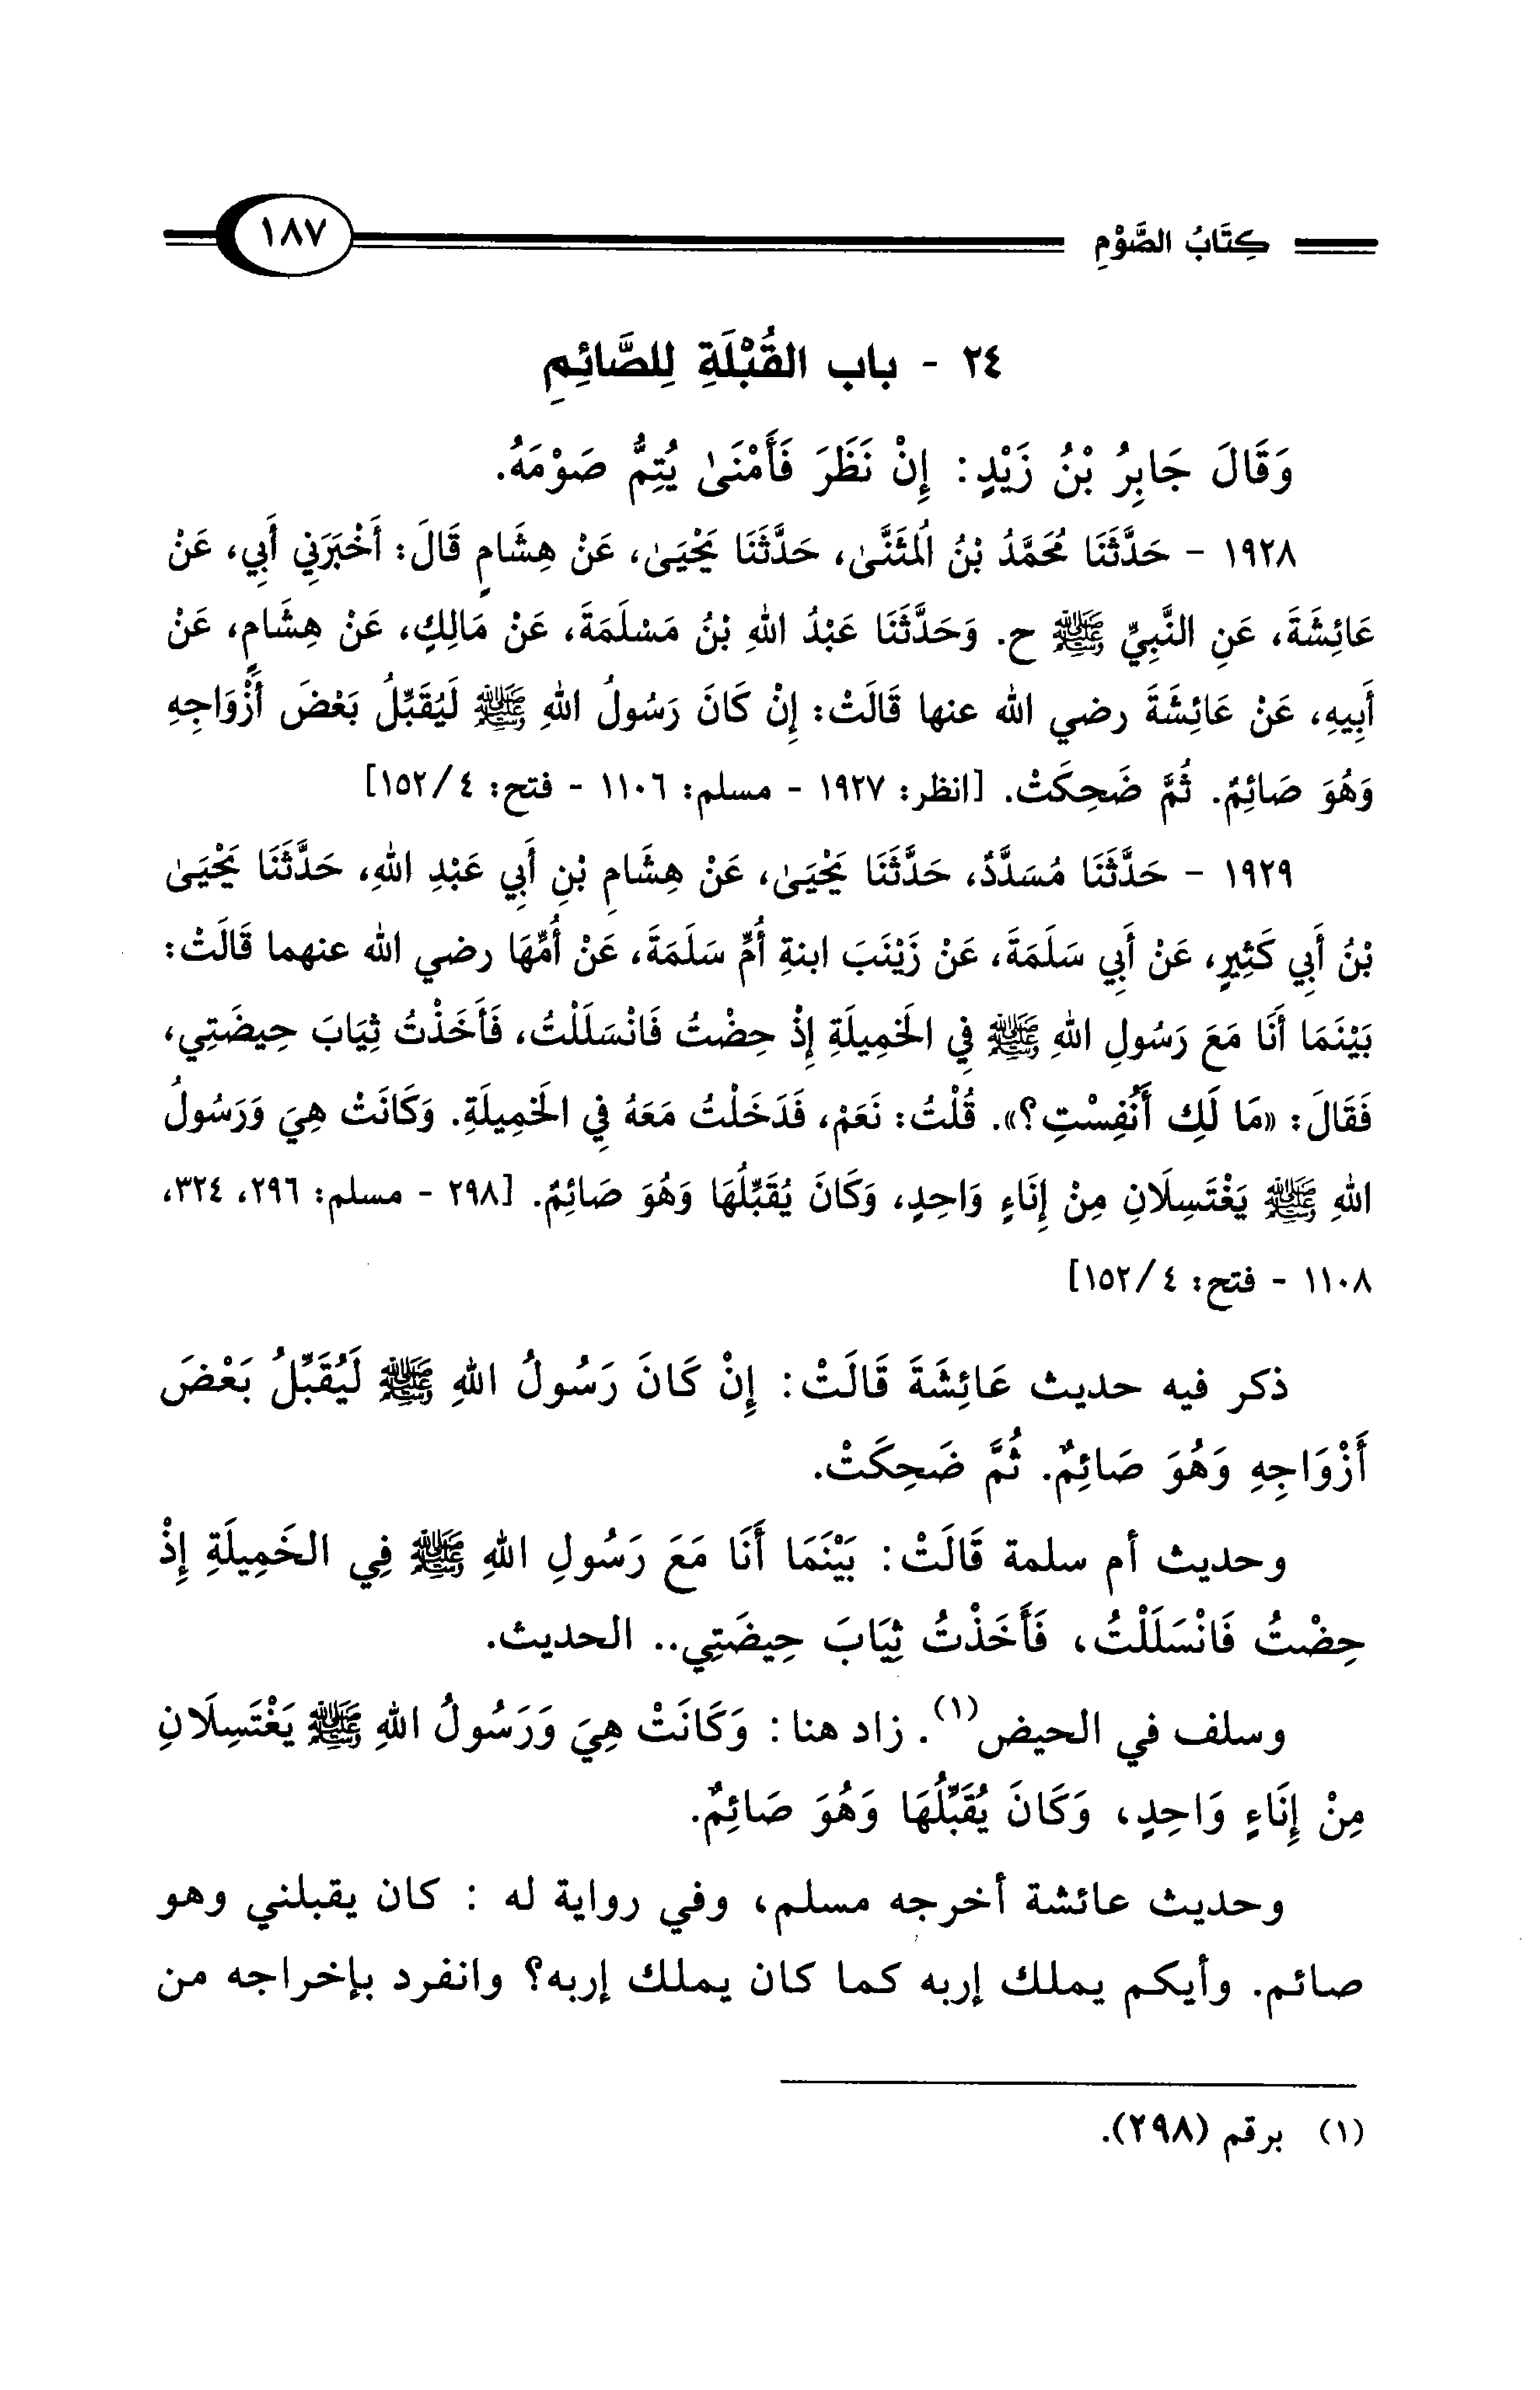 كِتَابُ الصَّوْمِ ١٨٧
٢٤ - باب القُبْلَةِ لِلصَّائِمِ
وَقَالَ جَابِرُ بْنُ زَيْدٍ: إِنْ نَظَرَ فَأَمْنَىٰ يُتِمُّ صَوْمَهُ.
١٩٢٨ - حَدَّثَنَا مُحَمَّدُ بْنُ الْمُثَنَّىٰ، حَدَّثَنَا يَحْيَىٰ، عَنْ هِشَامٍ قَالَ: أَخْبَرَنِي أَبِي، عَنْ
عَائِشَةَ، عَنِ النَّبِيِّ ﷺ ح. وَحَدَّثَنَا عَبْدُ اللهِ بْنُ مَسْلَمَةَ، عَنْ مَالِكٍ، عَنْ هِشَامٍ، عَنْ
أَبِيهِ، عَنْ عَائِشَةَ رضي الله عنها قَالَتْ: إِنْ كَانَ رَسُولُ اللهِ ﷺ لَيُقَبِّلُ بَعْضَ أَزْوَاجِهِ
وَهُوَ صَائِمٌ. ثُمَّ ضَحِكَتْ. [انظر: ١٩٢٧ - مسلم: ١١٠٦ - فتح: ٤/ ١٥٢]
١٩٢٩ - حَدَّثَنَا مُسَدَّدٌ، حَدَّثَنَا يَحْيَىٰ، عَنْ هِشَامِ بْنِ أَبِي عَبْدِ اللهِ، حَدَّثَنَا يَحْيَىٰ
بْنُ أَبِي كَثِيرٍ، عَنْ أَبِي سَلَمَةَ، عَنْ زَيْنَبَ ابنةِ أُمِّ سَلَمَةَ، عَنْ أُمِّهَا رضي الله عنهما قَالَتْ:
بَيْنَمَا أَنَا مَعَ رَسُولِ اللهِ ﷺ فِي الْخَمِيلَةِ إِذْ حِضْتُ فَانْسَلَلْتُ، فَأَخَذْتُ ثِيَابَ حِيضَتِي،
فَقَالَ: «مَا لَكِ أَنُفِسْتِ؟». قُلْتُ: نَعَمْ، فَدَخَلْتُ مَعَهُ فِي الْخَمِيلَةِ. وَكَانَتْ هِيَ وَرَسُولُ
اللهِ ﷺ يَغْتَسِلَانِ مِنْ إِنَاءٍ وَاحِدٍ، وَكَانَ يُقَبِّلُهَا وَهُوَ صَائِمٌ. [٢٩٨ - مسلم: ٢٩٦، ٣٢٤،
١١٠٨ - فتح: ٤/ ١٥٢]
ذكر فيه حديث عَائِشَةَ قَالَتْ: إِنْ كَانَ رَسُولُ اللهِ ﷺ لَيُقَبِّلُ بَعْضَ
أَزْوَاجِهِ وَهُوَ صَائِمٌ. ثُمَّ ضَحِكَتْ.
وحديث أم سلمة قَالَتْ: بَيْنَمَا أَنَا مَعَ رَسُولِ اللهِ ﷺ فِي الخَمِيلَةِ إِذْ
حِضْتُ فَانْسَلَلْتُ، فَأَخَذْتُ ثِيَابَ حِيضَتِي.. الحديث.
وسلف في الحيض(١). زاد هنا: وَكَانَتْ هِيَ وَرَسُولُ اللهِ ﷺ يَغْتَسِلَانِ
مِنْ إِنَاءٍ وَاحِدٍ، وَكَانَ يُقَبِّلُهَا وَهُوَ صَائِمٌ.
وحديث عائشة أخرجه مسلم، وفي رواية له : كان يقبلني وهو
صائم. وأيكم يملك إربه كما كان يملك إربه؟ وانفرد بإخراجه من
(١) برقم (٢٩٨).